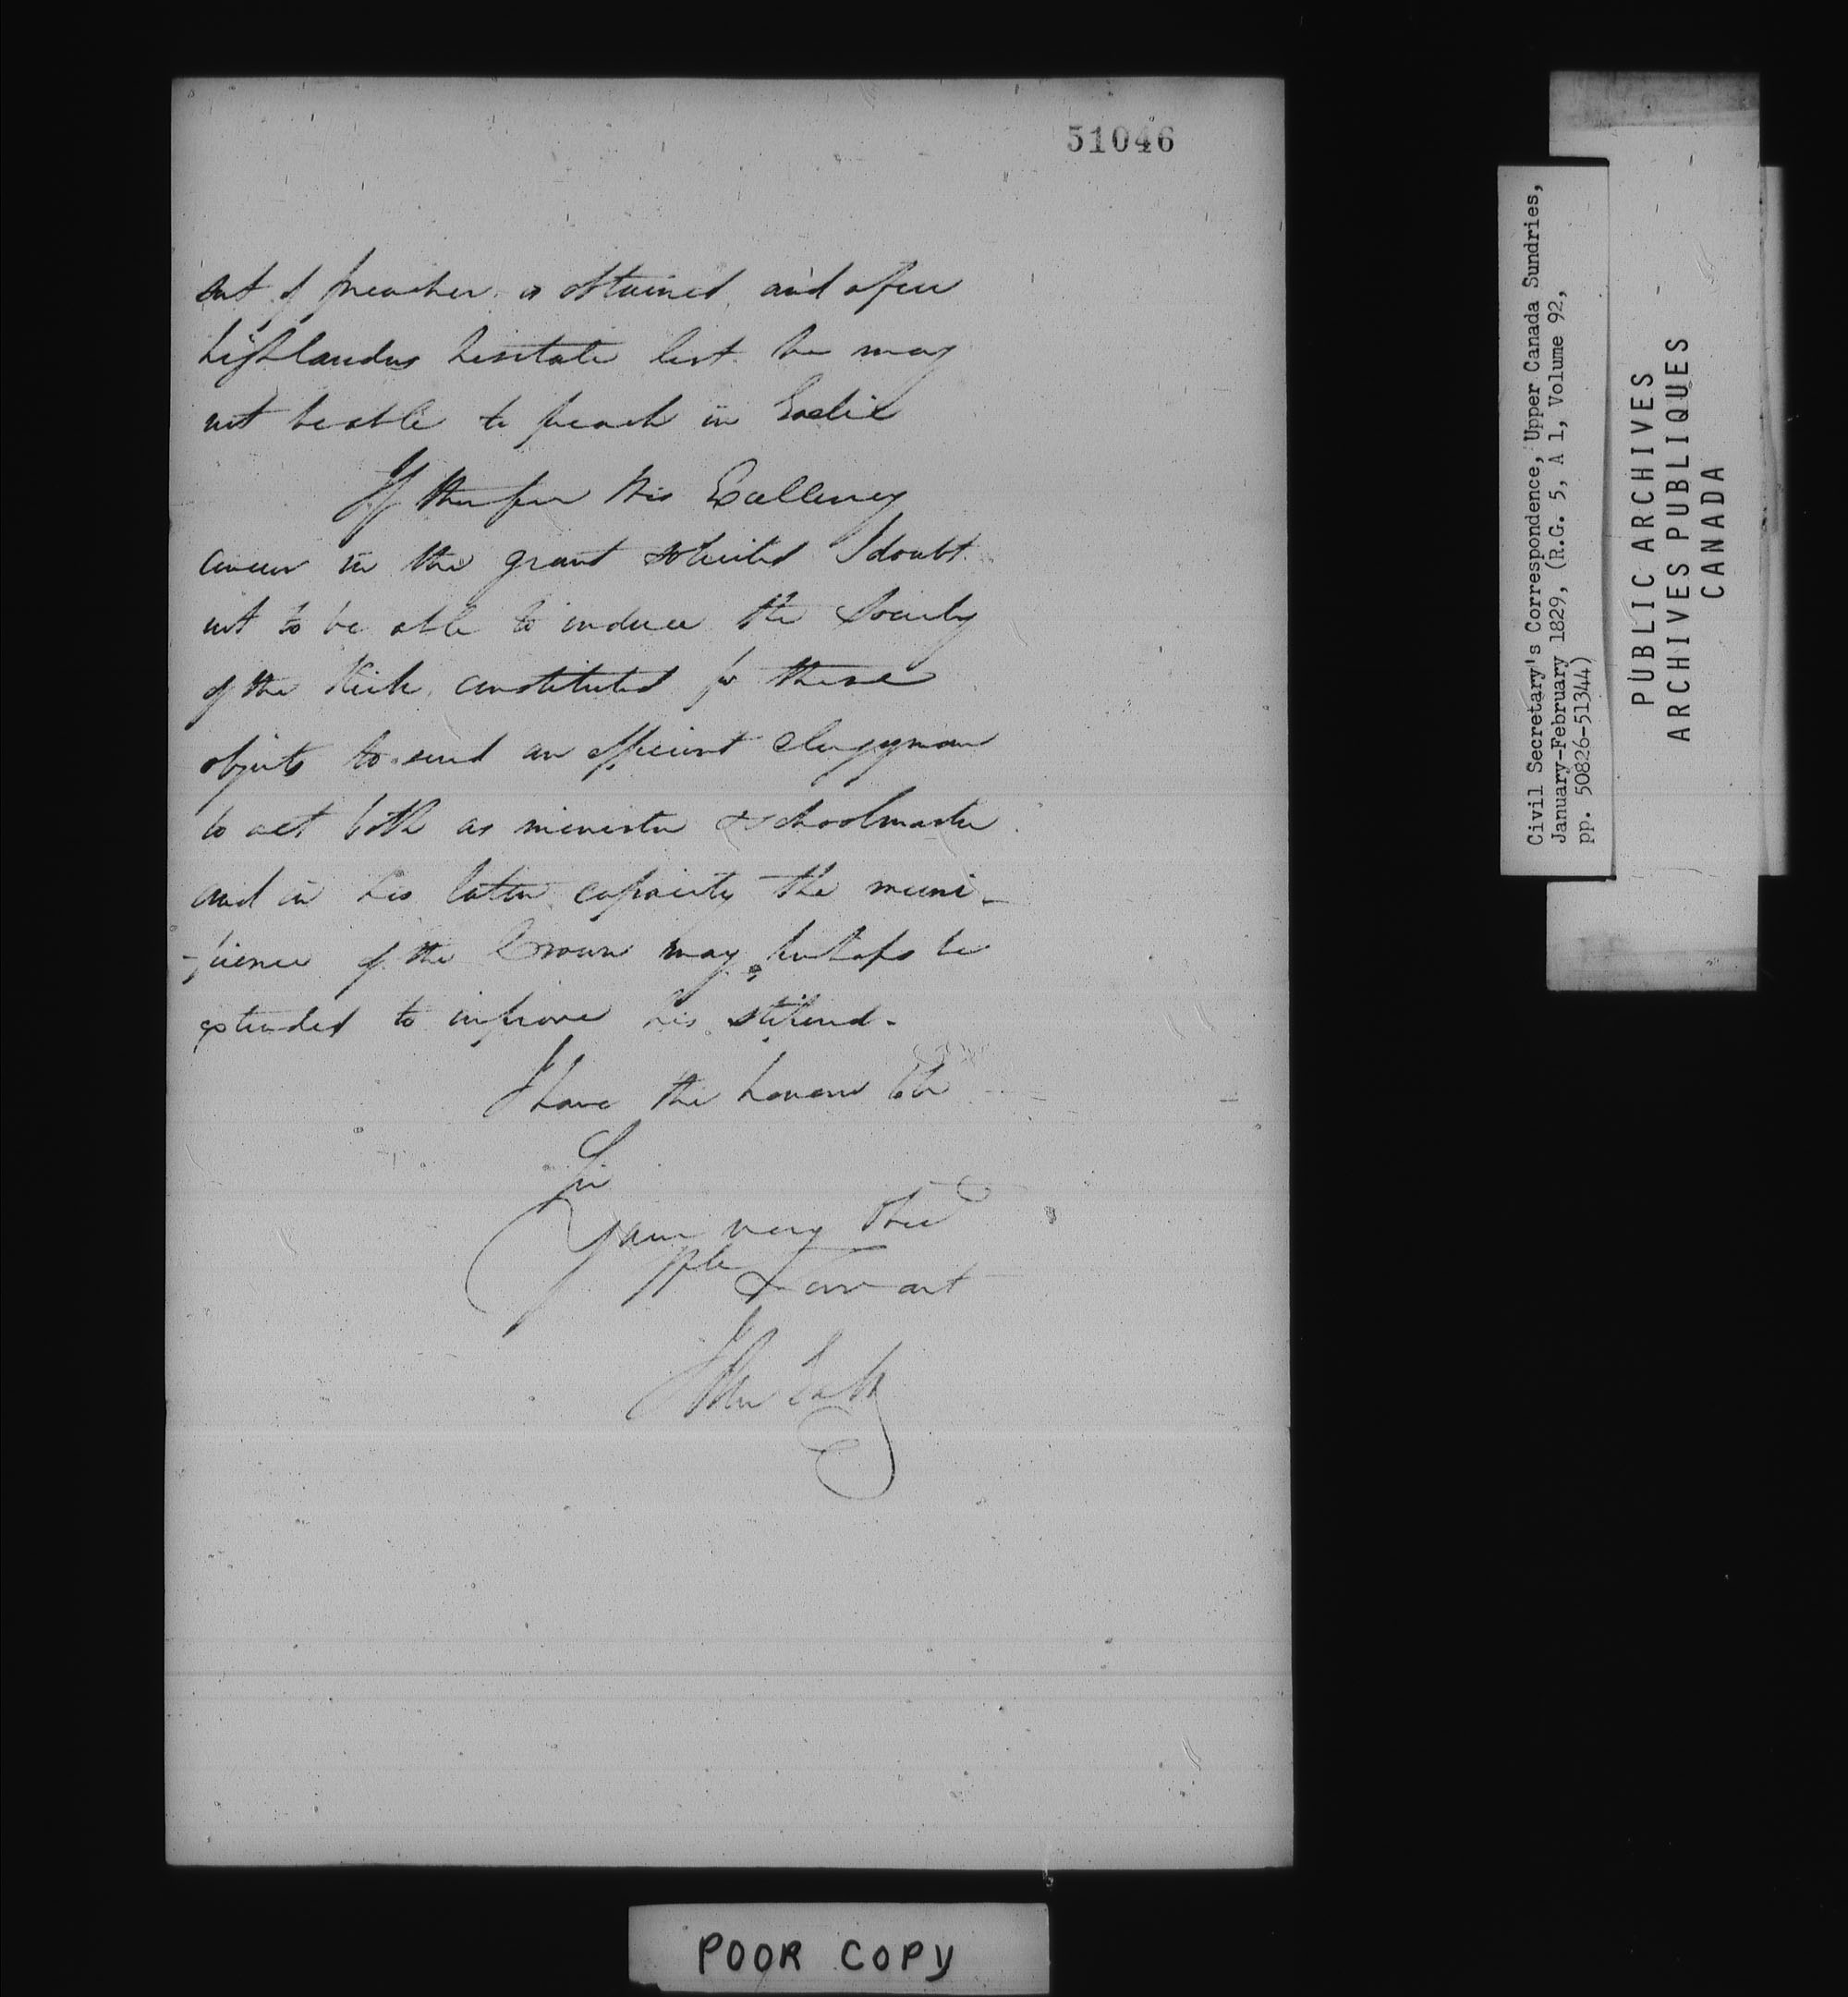 51046
sort of preacher is obtained, and a few
highlanders hesitate lest he may
not be able to preach in Gaelic
If therefore His Excellency
concur in the grant solicited I doubt
not to be able to induce the Society
of the Kirk constituted for these
objects to send an efficient clergyman
to act both as minister & schoolmaster
and in his latter capacity the muni-
-ficence of the Crown may perhaps be
extended to improve his stipend.
I have the honour to be
Sir
Your very Obed
Hble Servant
John Galt
Civil Secretary's Correspondence, Upper Canada Sundries,
January-February 1829, (R.G. 5, A 1, Volume 92,
pp. 50826-51344)
PUBLIC ARCHIVES
ARCHIVES PUBLIQUES
CANADA
POOR COPY